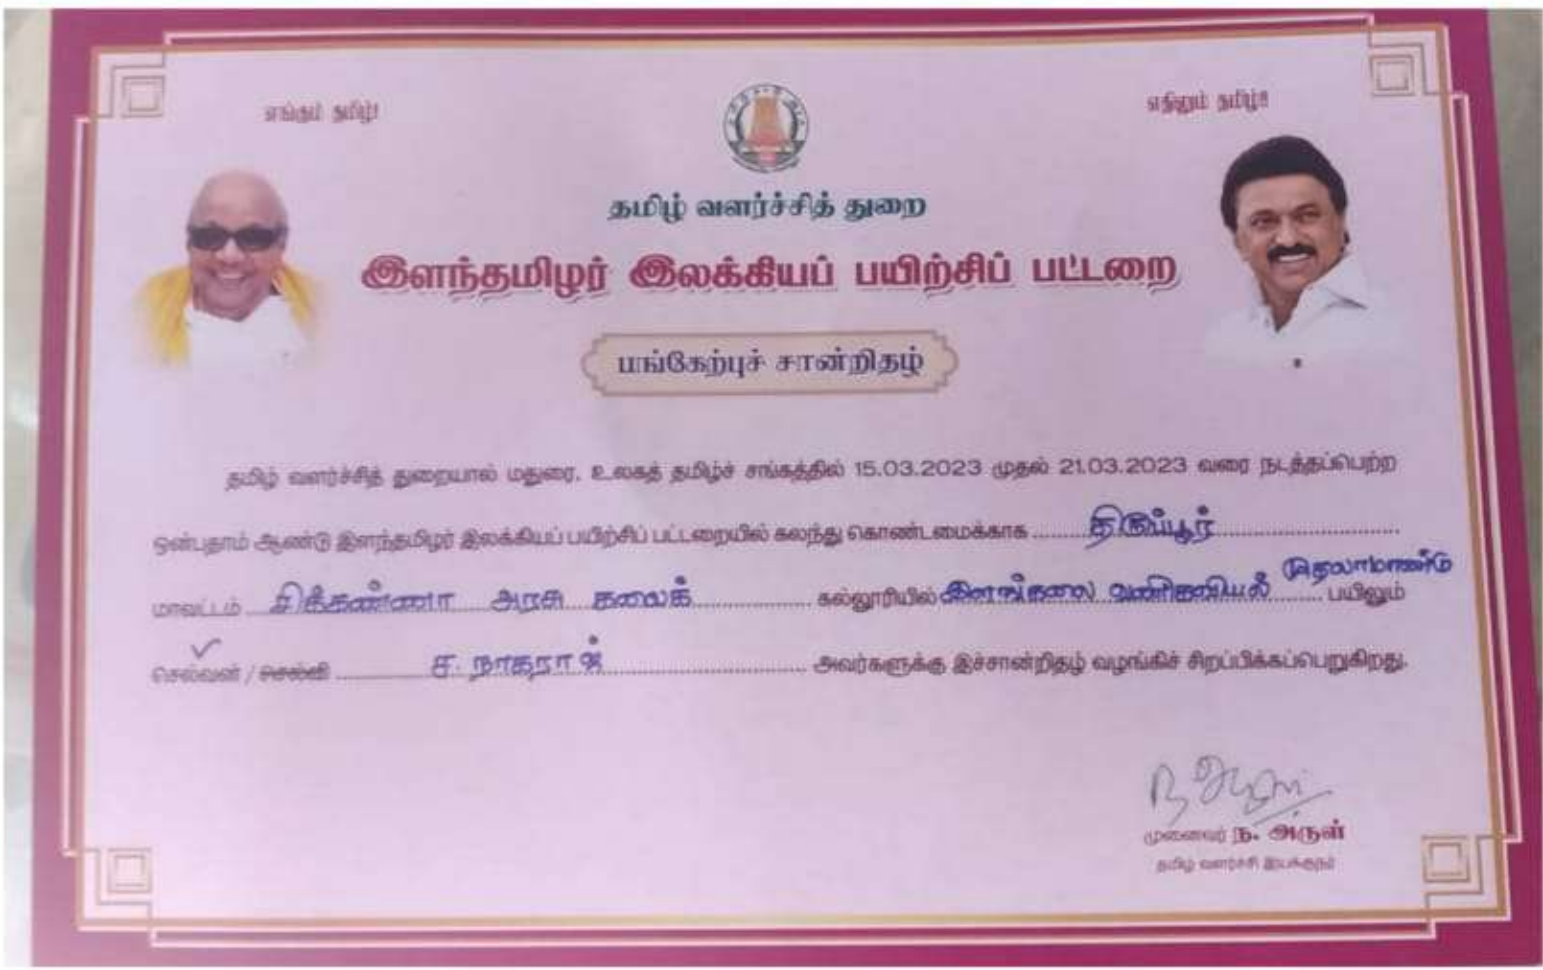 எங்கும் தமிழ்!
எதிலும் தமிழ்!!
தமிழ் வளர்ச்சித் துறை
இளந்தமிழர் இலக்கியப் பயிற்சிப் பட்டறை
பங்கேற்புச் சான்றிதழ்
தமிழ் வளர்ச்சித் துறையால் மதுரை, உலகத் தமிழ்ச் சங்கத்தில் 15.03.2023 முதல் 21.03.2023 வரை நடத்தப்பெற்ற
ஒன்பதாம் ஆண்டு இளந்தமிழர் இலக்கியப் பயிற்சிப் பட்டறையில் கலந்து கொண்டமைக்காக திருப்பூர்
மாவட்டம் சிக்கண்ணா அரசு கலைக் கல்லூரியில் இளங்கலை வணிகவியல் முதலாமாண்டு பயிலும்
செல்வன் / செல்வி ச. நாகராஜ் அவர்களுக்கு இச்சான்றிதழ் வழங்கிச் சிறப்பிக்கப்பெறுகிறது.
ந அருள்
முனைவர் ந. அருள்
தமிழ் வளர்ச்சி இயக்குநர்